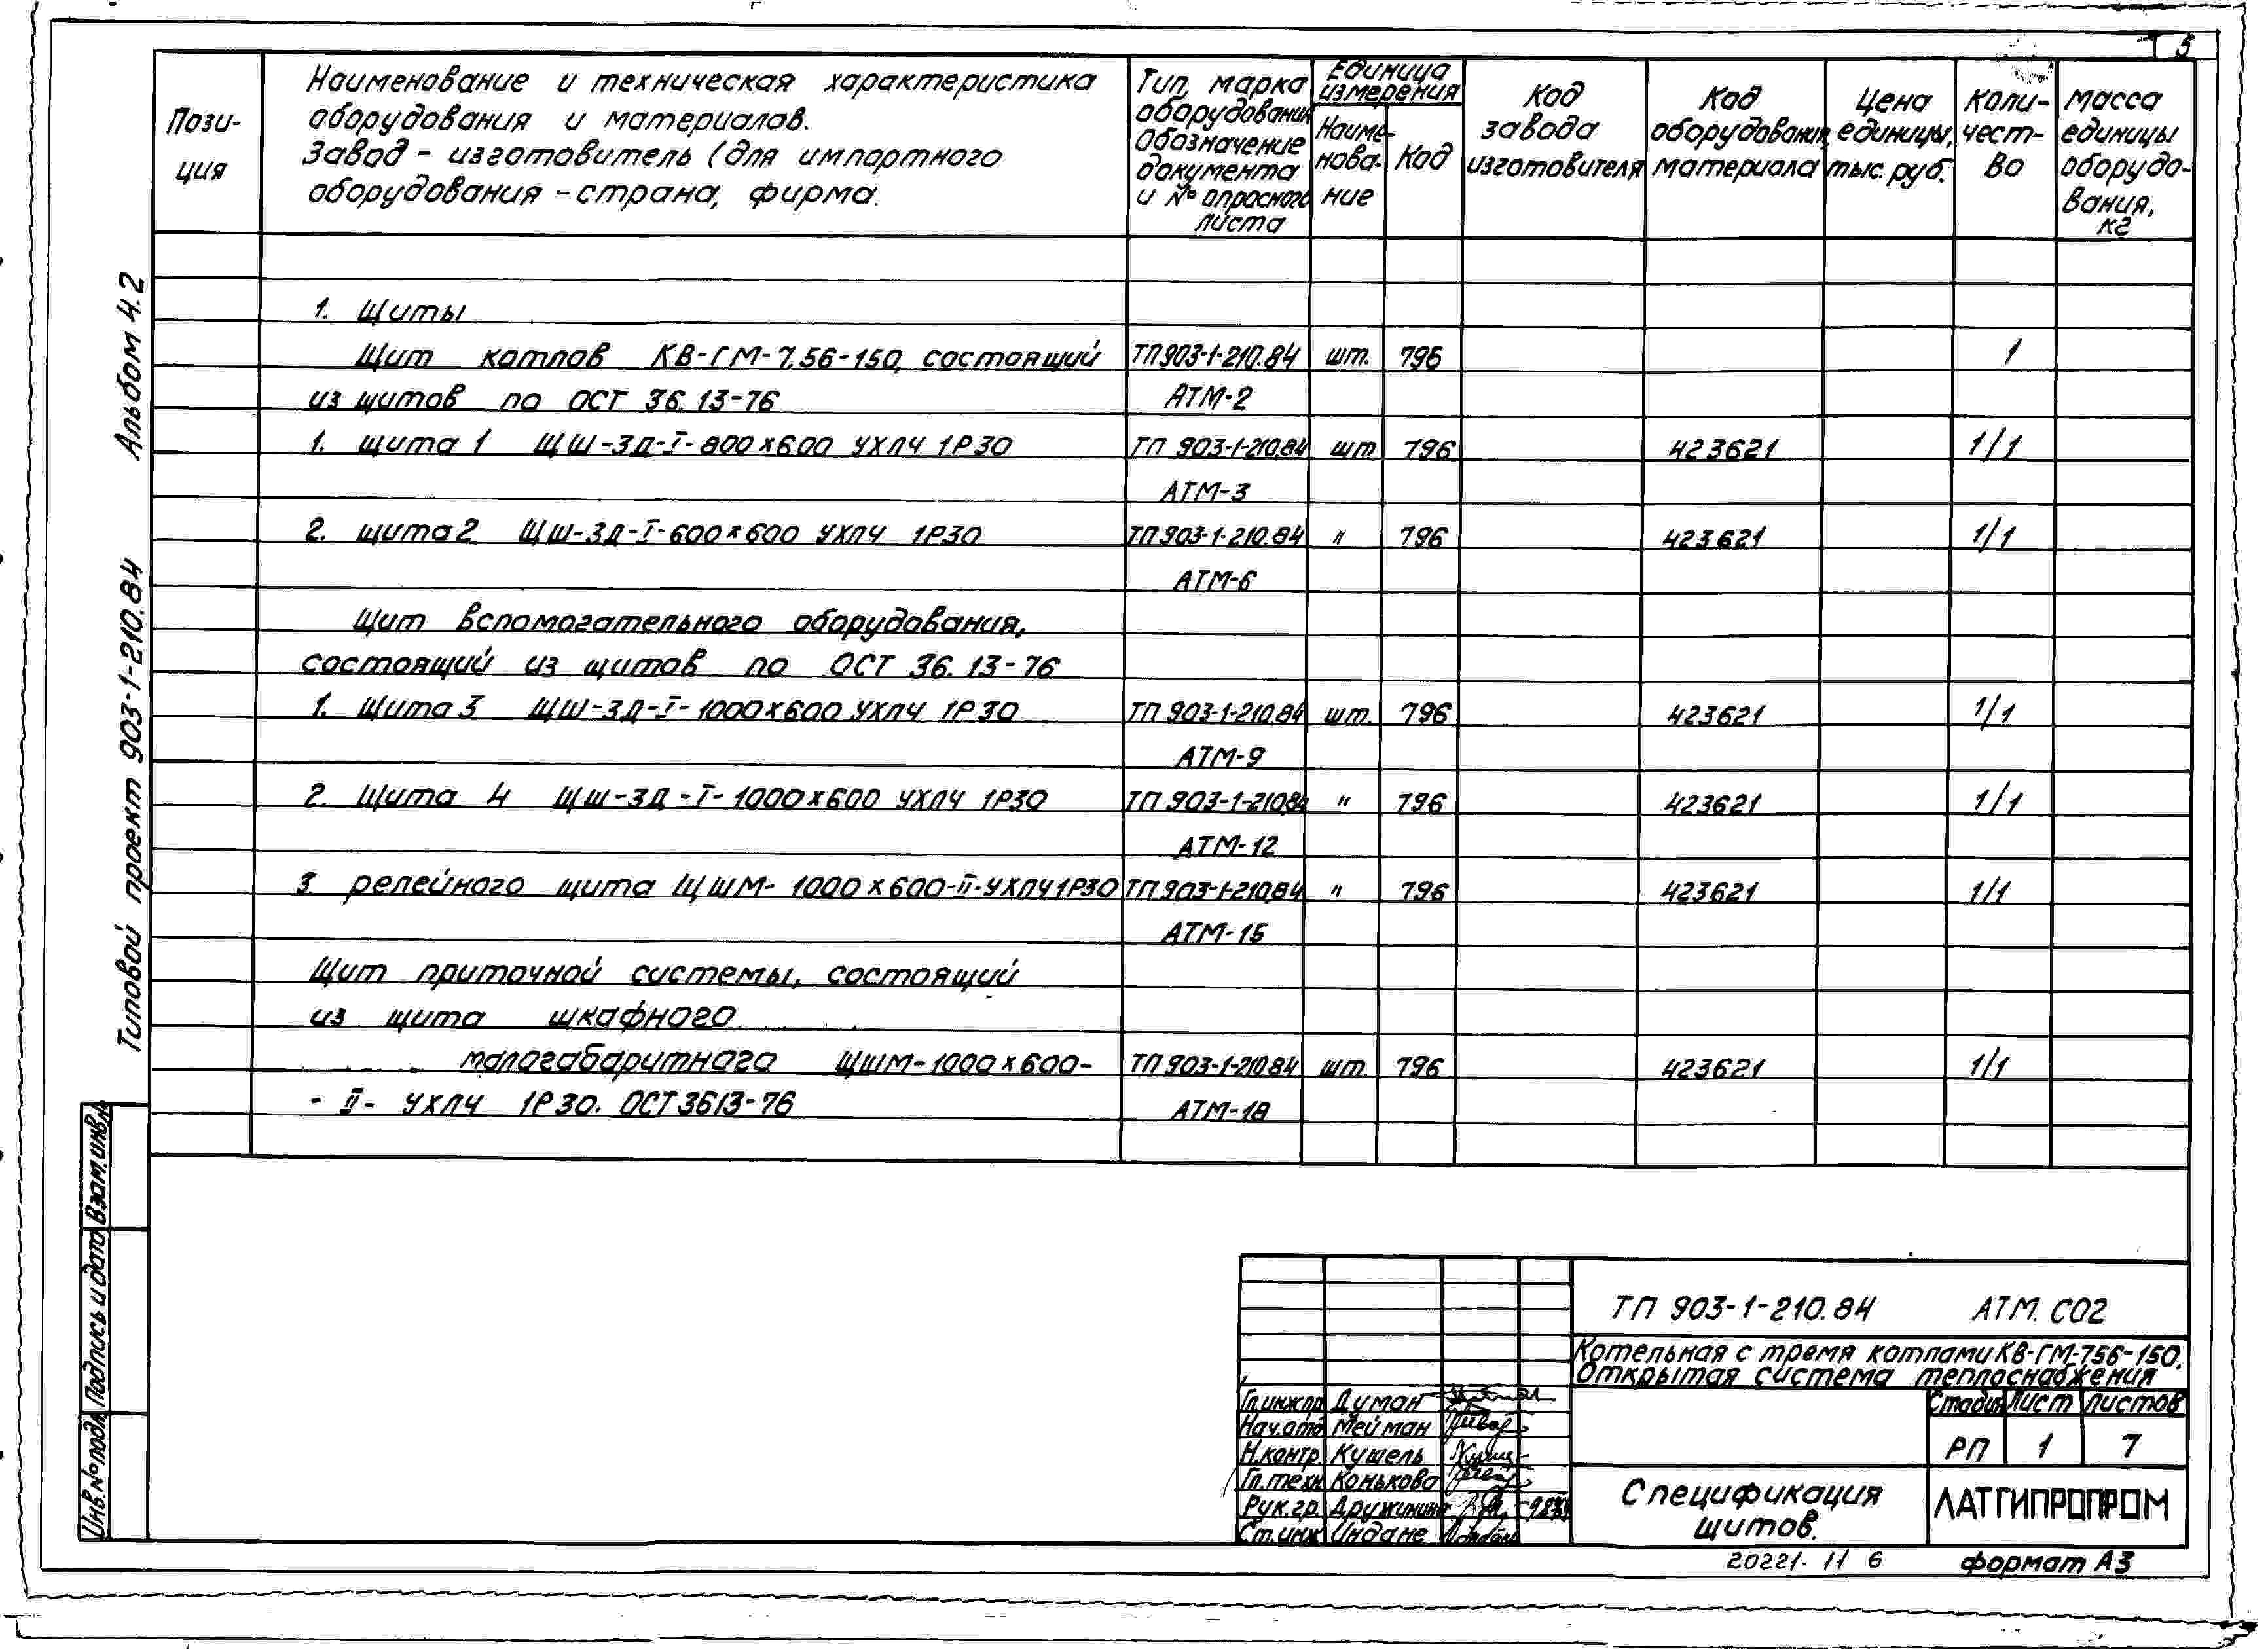 5
Пози-
ция
Наименование и техническая характеристика
оборудования и материалов.
Завод - изготовитель (для импортного
оборудования - страна, фирма.
Тип, марка
оборудования
обозначение
документа
и № опросного
листа
Единица
измерения
Наиме-
нова-
ние
Код
Код
завода
изготовителя
Код
оборудования,
материала
Цена
единицы,
тыс. руб.
Коли-
чест-
во
Масса
единицы
оборудо-
вания,
кг
1. Щиты
Щит котлов КВ-ГМ-7.56-150, состоящий ТП903-1-210.84 шт. 796 1
из щитов по ОСТ 36.13-76 АТМ-2
1. щита 1 ЩШ-3Д-I-800х600 УХЛ4 1Р30 ТП 903-1-210.84 шт 796 423621 1/1
АТМ-3
2. щита 2 ЩШ-3Д-I-600х600 УХЛ4 1Р30 ТП903-1-210.84 " 796 423621 1/1
АТМ-6
Щит вспомогательного оборудования,
состоящий из щитов по ОСТ 36.13-76
1. Щита 3 ЩШ-3Д-I-1000х600 УХЛ4 1Р30 ТП 903-1-210.84 шт. 796 423621 1/1
АТМ-9
2. Щита 4 ЩШ-3Д-I-1000х600 УХЛ4 1Р30 ТП 903-1-210.84 " 796 423621 1/1
АТМ-12
3 релейного щита ЩШМ-1000х600-II-УХЛ4 1Р30 ТП 903-1-210.84 " 796 423621 1/1
АТМ-15
Щит приточной системы, состоящий
из щита шкафного
малогабаритного ЩШМ-1000х600- ТП 903-1-210.84 шт. 796 423621 1/1
- II - УХЛ4 1Р30. ОСТ3613-76 АТМ-18
Типовой проект 903-1-210.84 Альбом 4.2
Взам. инв. №
Подпись и дата
Инв. № подл.
ТП 903-1-210.84 АТМ. СО2
Котельная с тремя котлами КВ-ГМ-756-150.
Открытая система теплоснабжения
Гл.инж.пр Думан
Нач.отд Мейман
Н.контр. Кушель
Гл.техн Конькова
Рук.гр. Дружинина
Ст.инж Индане
Стадия Лист Листов
РП 1 7
Спецификация
щитов.
ЛАТГИПРОПРОМ
20221-11 6 формат А3